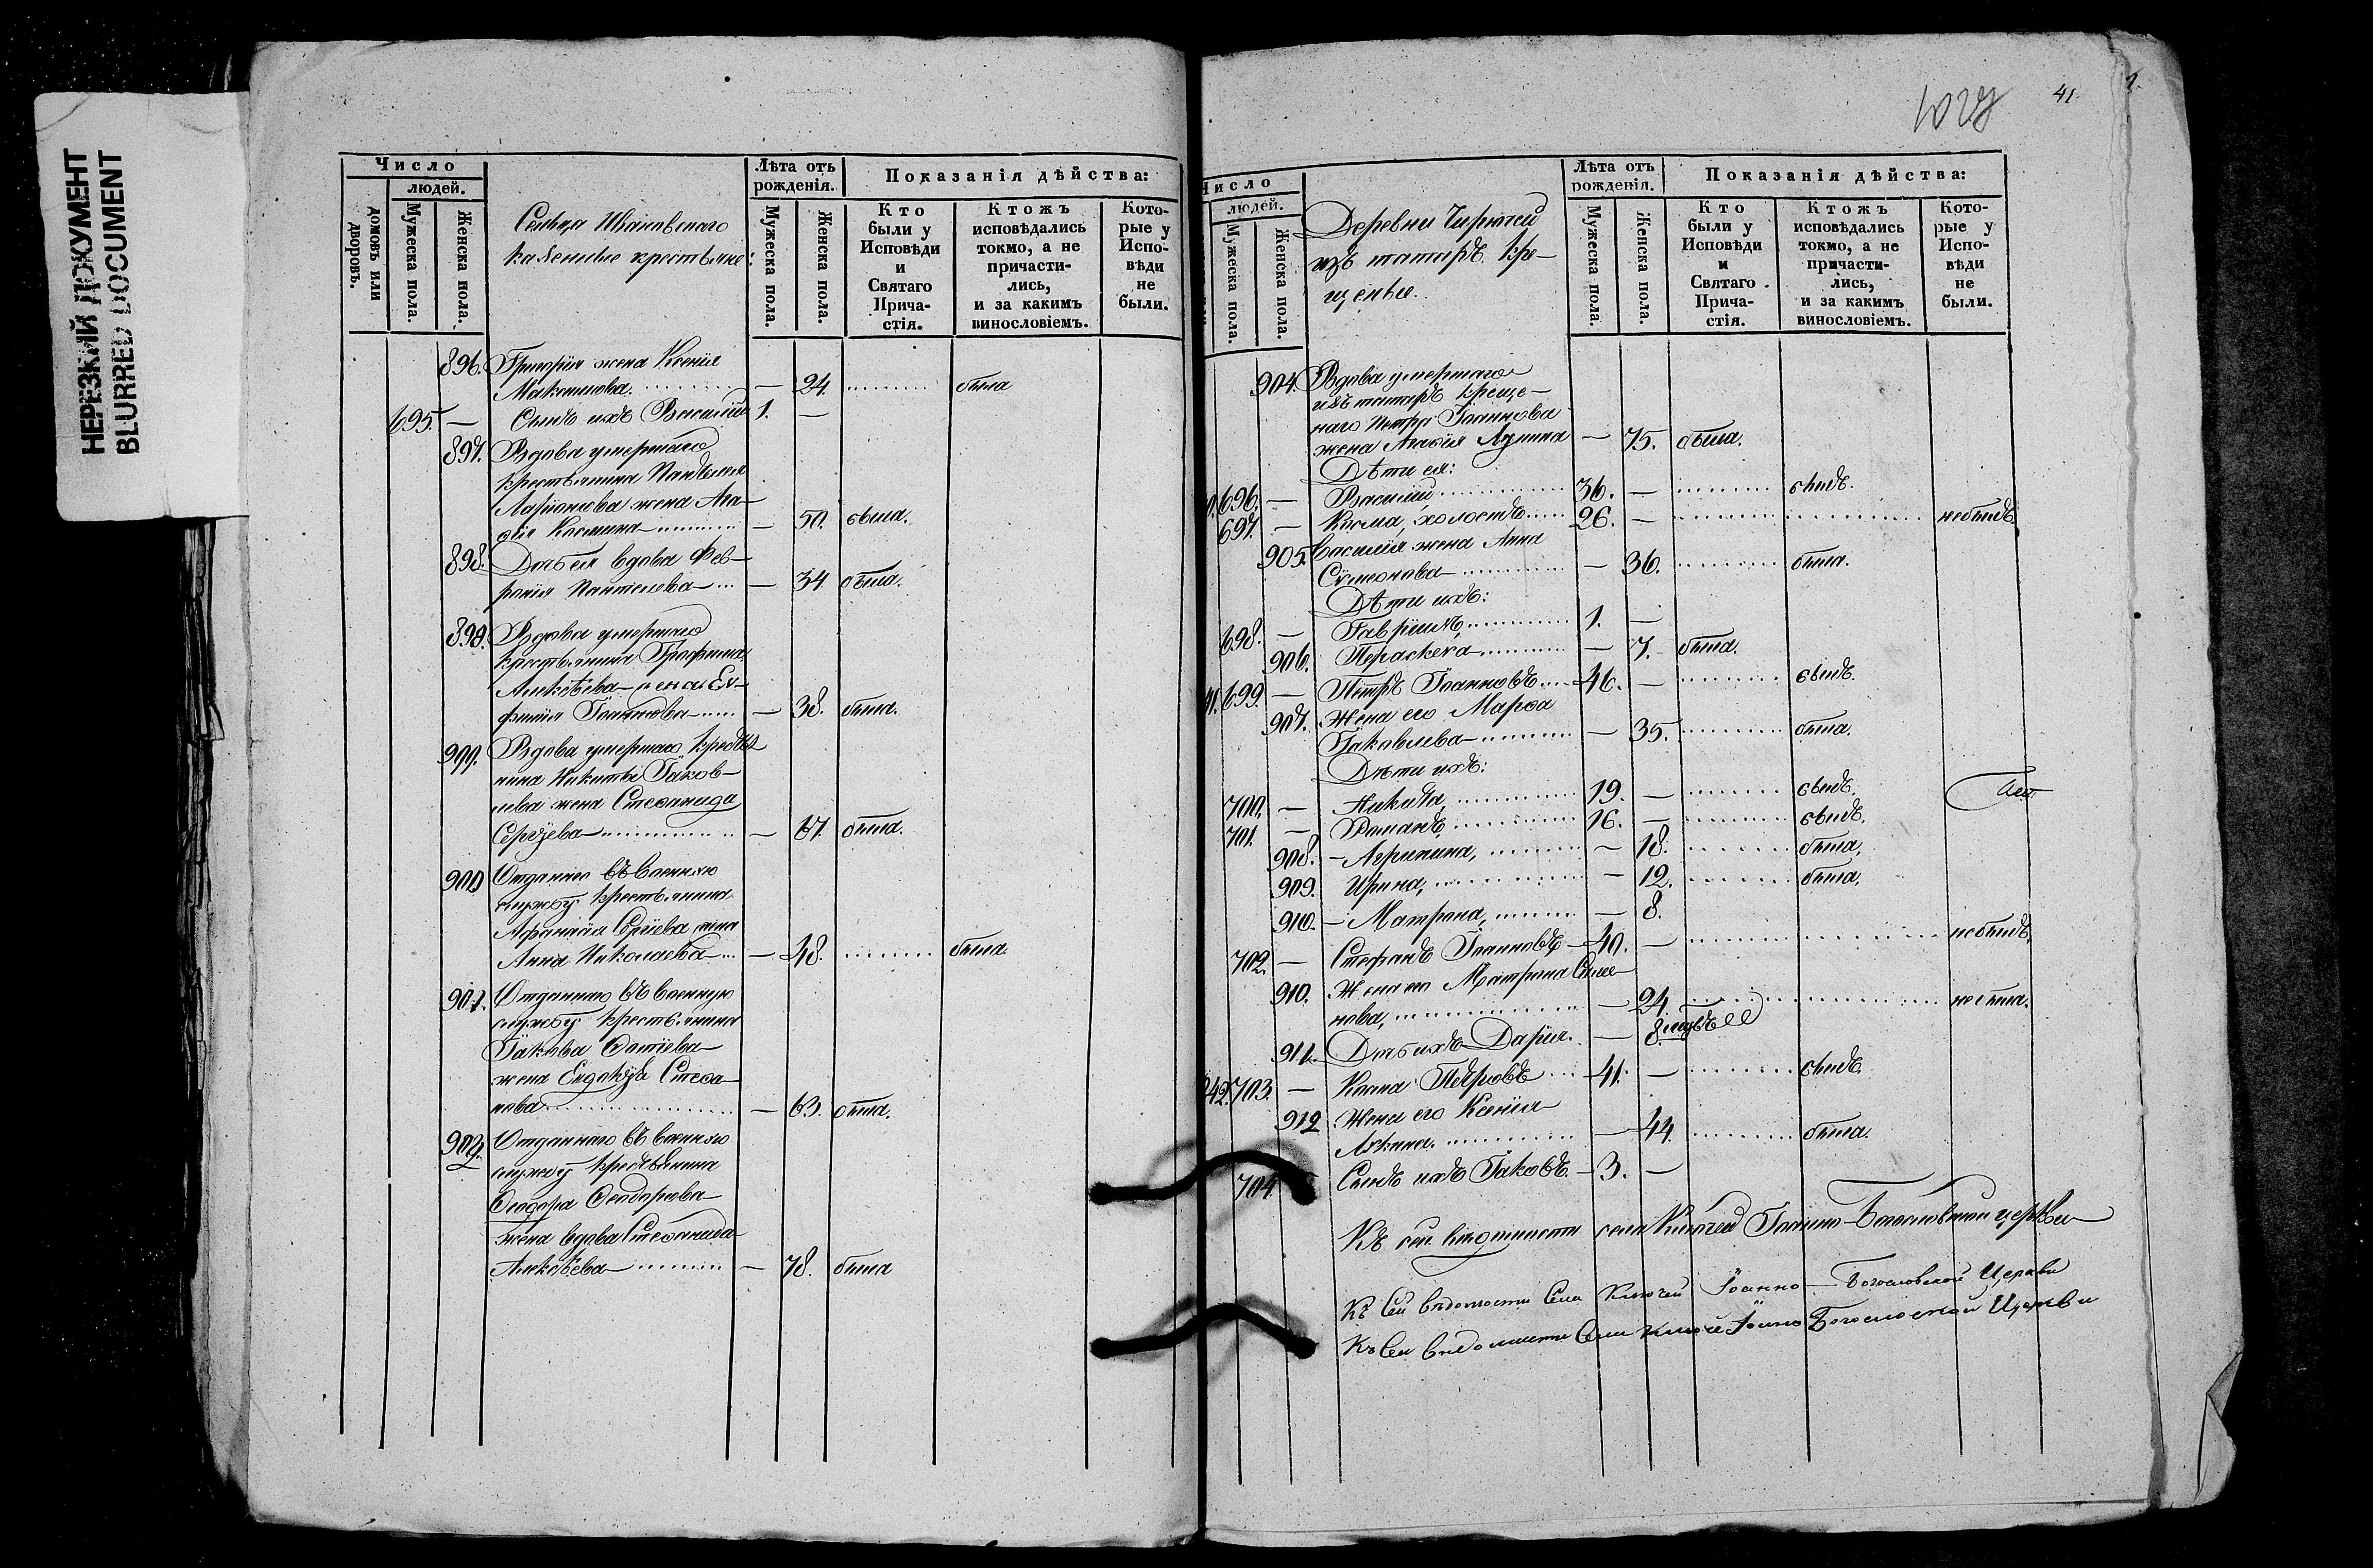 НЕРЕЗКИЙ ДОКУМЕНТ
BLURRED DOCUMENT
Число
людей.
домовъ или дворовъ.
Мужеска пола.
Женска пола.
Сельца Ивановскаго
казенные крестьяне:
Лѣта отъ рожденія.
Мужеска пола.
Женска пола.
Показанія дѣйства:
Кто были у Исповѣди и Святаго Прича- стія.
Ктожъ исповѣдались токмо, а не причасти- лись, и за какимъ винословіемъ.
Кото- рые у Испо- вѣди не были.
896. Григорія жена Ксенія
Максимова. — 24. была
695. — Сынъ ихъ Василій 1. —
897. Вдова умершаго
крестьянина
Ларіонова жена Ага-
фія Космина — 50. была.
898. Дочь ея вдова Фев-
ронія Пантелева — 34 была.
899. Вдова умершаго
крестьянина Трофима
Алексѣева жена Ев-
фимія Іоаннова — 38. была.
Вдова умершаго крестья
нина Никиты Іаков-
лева жена Стефанида
Сергіева — 67. была.
900 Отданнаго въ военную
службу крестьянина
Афанасія Сергіева жена
Анна Николаева — 48. была.
901. Отданнаго въ военную
службу крестьянина
Іакова Фотіева
жена Евдокія Стефа-
нова — 63. была.
902. Отданнаго въ военную
службу крестьянина
Феодора Феодорова
жена вдова Стефанида
Алексѣева — 78. была
41.
Число
людей.
Мужеска пола.
Женска пола.
Деревни Чирючей
изъ татаръ кре-
щеные.
Лѣта отъ рожденія.
Мужеска пола.
Женска пола.
Показанія дѣйства:
Кто были у Исповѣди и Святаго Прича- стія.
Ктожъ исповѣдались токмо, а не причасти- лись, и за какимъ винословіемъ.
Кото- рые у Испо- вѣди не были.
904. Вдова умершаго
изъ татаръ креще-
наго Петра Іоаннова
жена — 75. была.
Дѣти ея:
696. — Василій 36. — былъ.
697. — Косма, холостъ 26. — небылъ
905. Василія жена Анна
Сѵмеонова — 36. была.
Дѣти ихъ:
698. — Гавріилъ, 1. —
906. Параскева — 7. была.
699. — Петръ Іоанновъ 46. — былъ.
907. Жена его Марфа
Іаковлева — 35. была.
Дѣти ихъ:
700. — Никита, 19. — былъ.
701. — Романъ, 16. — былъ.
908. — Агрипина, — 18. была.
909. Ирина, — 12. была.
910. — Матрона, — 8.
702. — Стефанъ Іоанновъ — 40. — небылъ.
910. Жена его Матрона Симео
нова, — 24. небыла.
911. Дочь ихъ Дарія. — 8.
242. 703. — Косма Петровъ 41. — былъ.
912 Жена его Ксенія
— 44. была.
704. Сынъ ихъ Іаковъ. — 3. —
Къ сей вѣдомости села Ключей Іоанно-Богословской церкви
Къ Сей вѣдомости Села Ключей Іоанно-Богословской Церкви
Къ Сей вѣдомости Села Ключей Іоанно Богословской Церкви